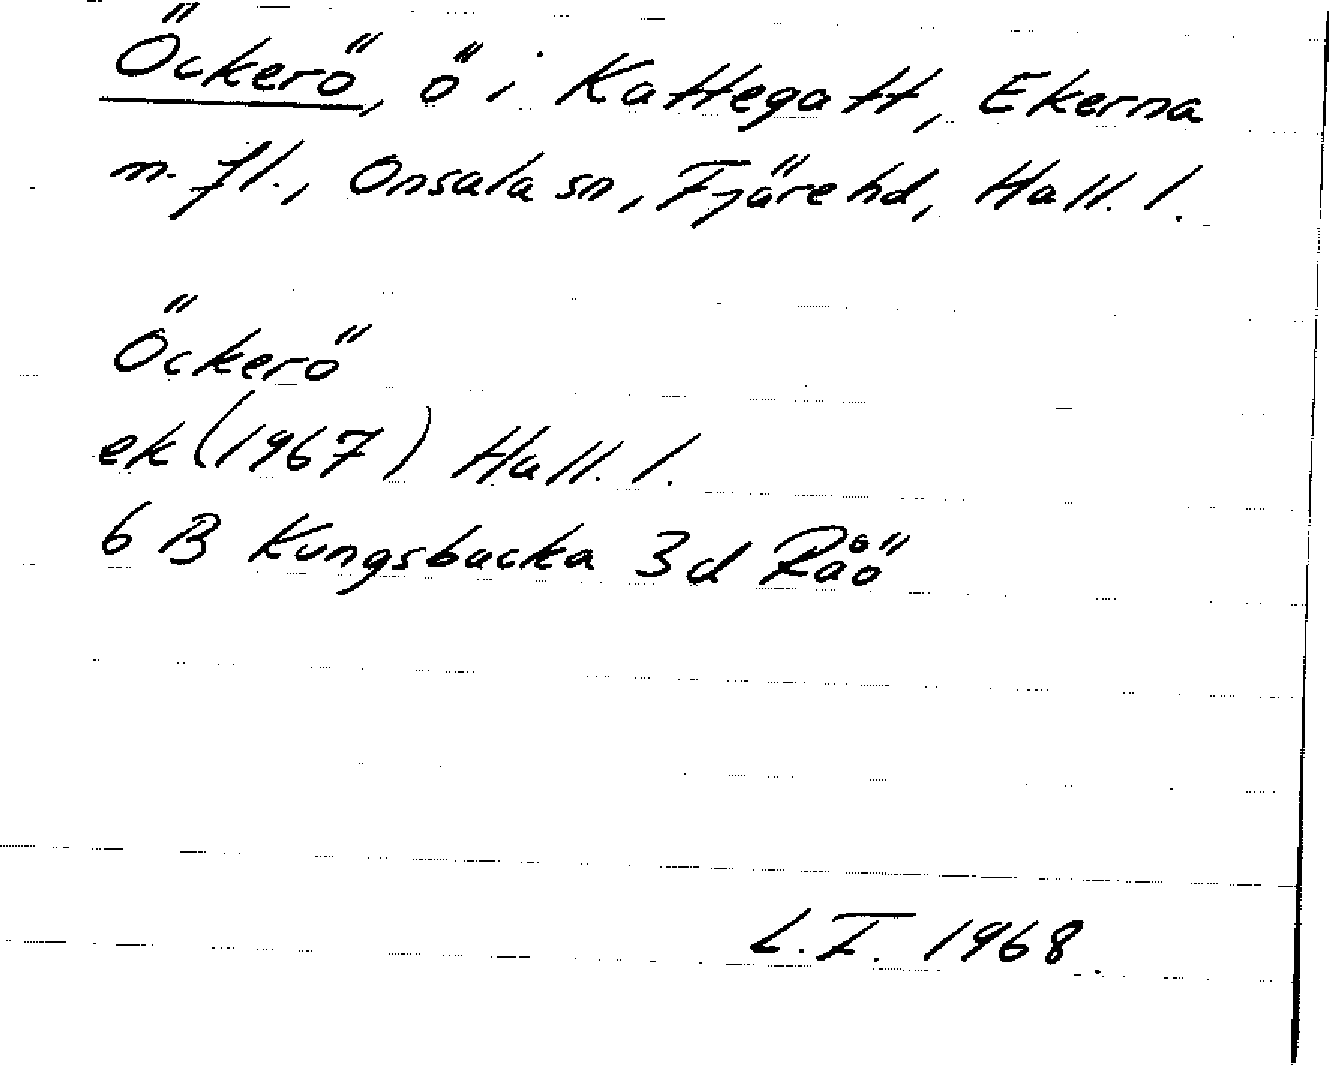 Öckerö, ö i Kattegatt, Ekerna
m.fl., Onsala sn, Fjäre hd, Hall. l.
Öckerö
ek (1967) Hall. l.
6 B Kungsbacka 3d Råö
L.I. 1968.